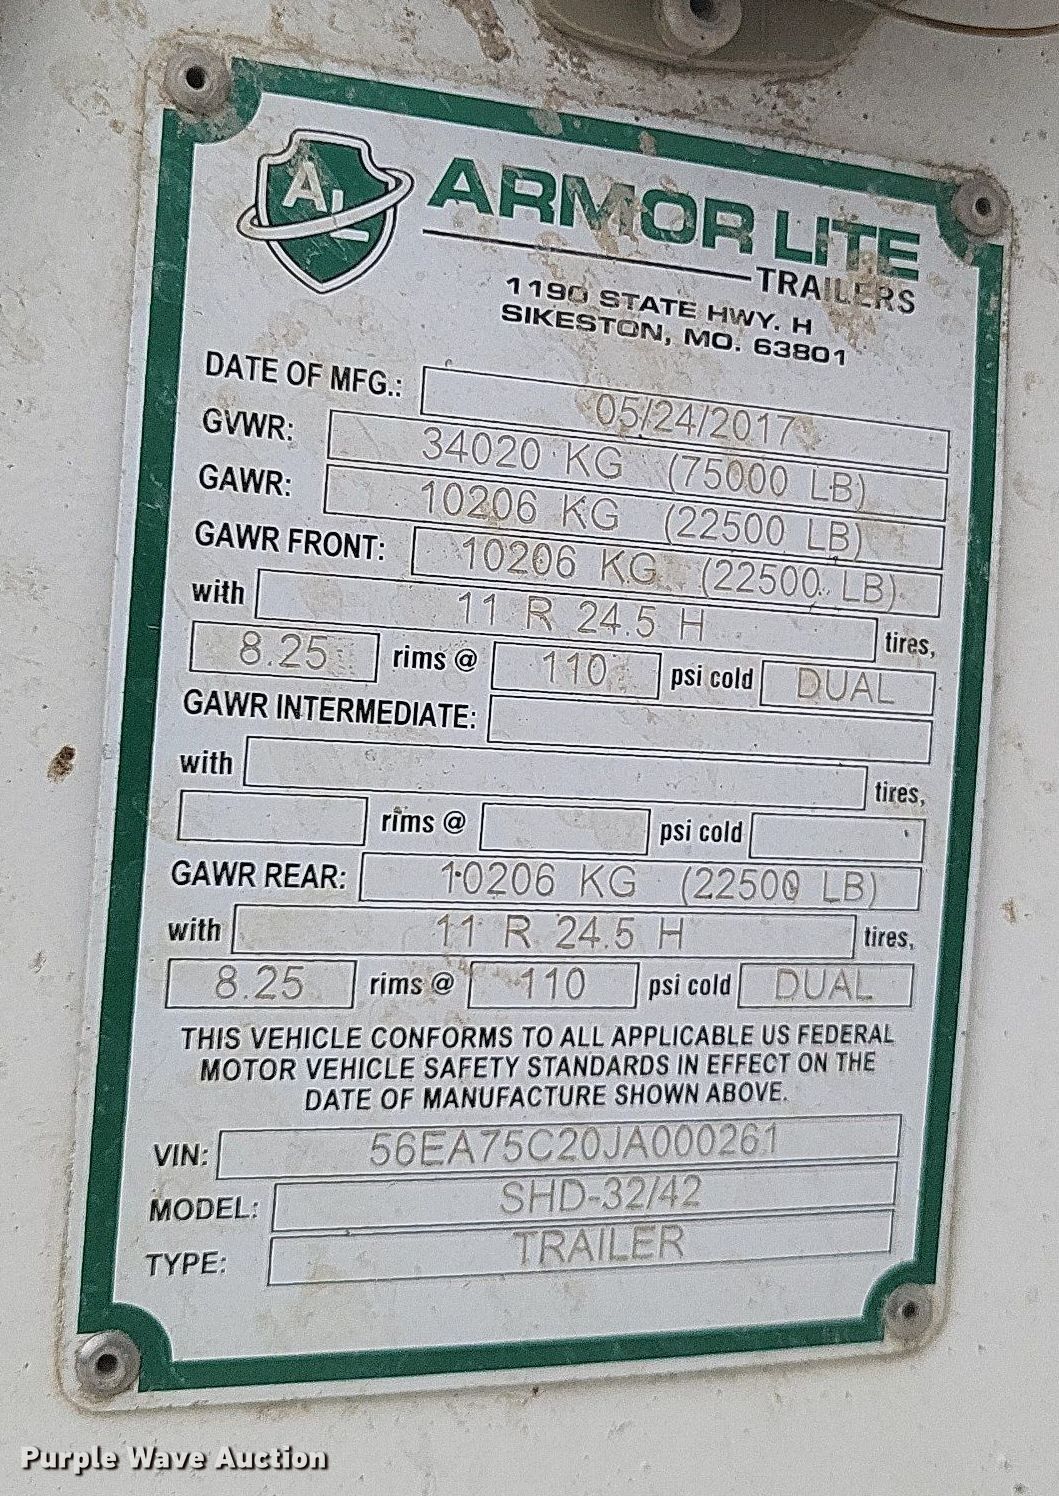 AL ARMOR LITE
TRAILERS
1190 STATE HWY. H
SIKESTON, MO. 63801
DATE OF MFG.: 05/24/2017
GVWR: 34020 KG (75000 LB)
GAWR: 10206 KG (22500 LB)
GAWR FRONT: 10206 KG (22500 LB)
with 11 R 24.5 H tires,
8.25 rims @ 110 psi cold DUAL
GAWR INTERMEDIATE:
with tires,
rims @ psi cold
GAWR REAR: 10206 KG (22500 LB)
with 11 R 24.5 H tires,
8.25 rims @ 110 psi cold DUAL
THIS VEHICLE CONFORMS TO ALL APPLICABLE US FEDERAL
MOTOR VEHICLE SAFETY STANDARDS IN EFFECT ON THE
DATE OF MANUFACTURE SHOWN ABOVE.
VIN: 56EA75C20JA000261
MODEL: SHD-32/42
TYPE: TRAILER
Purple Wave Auction